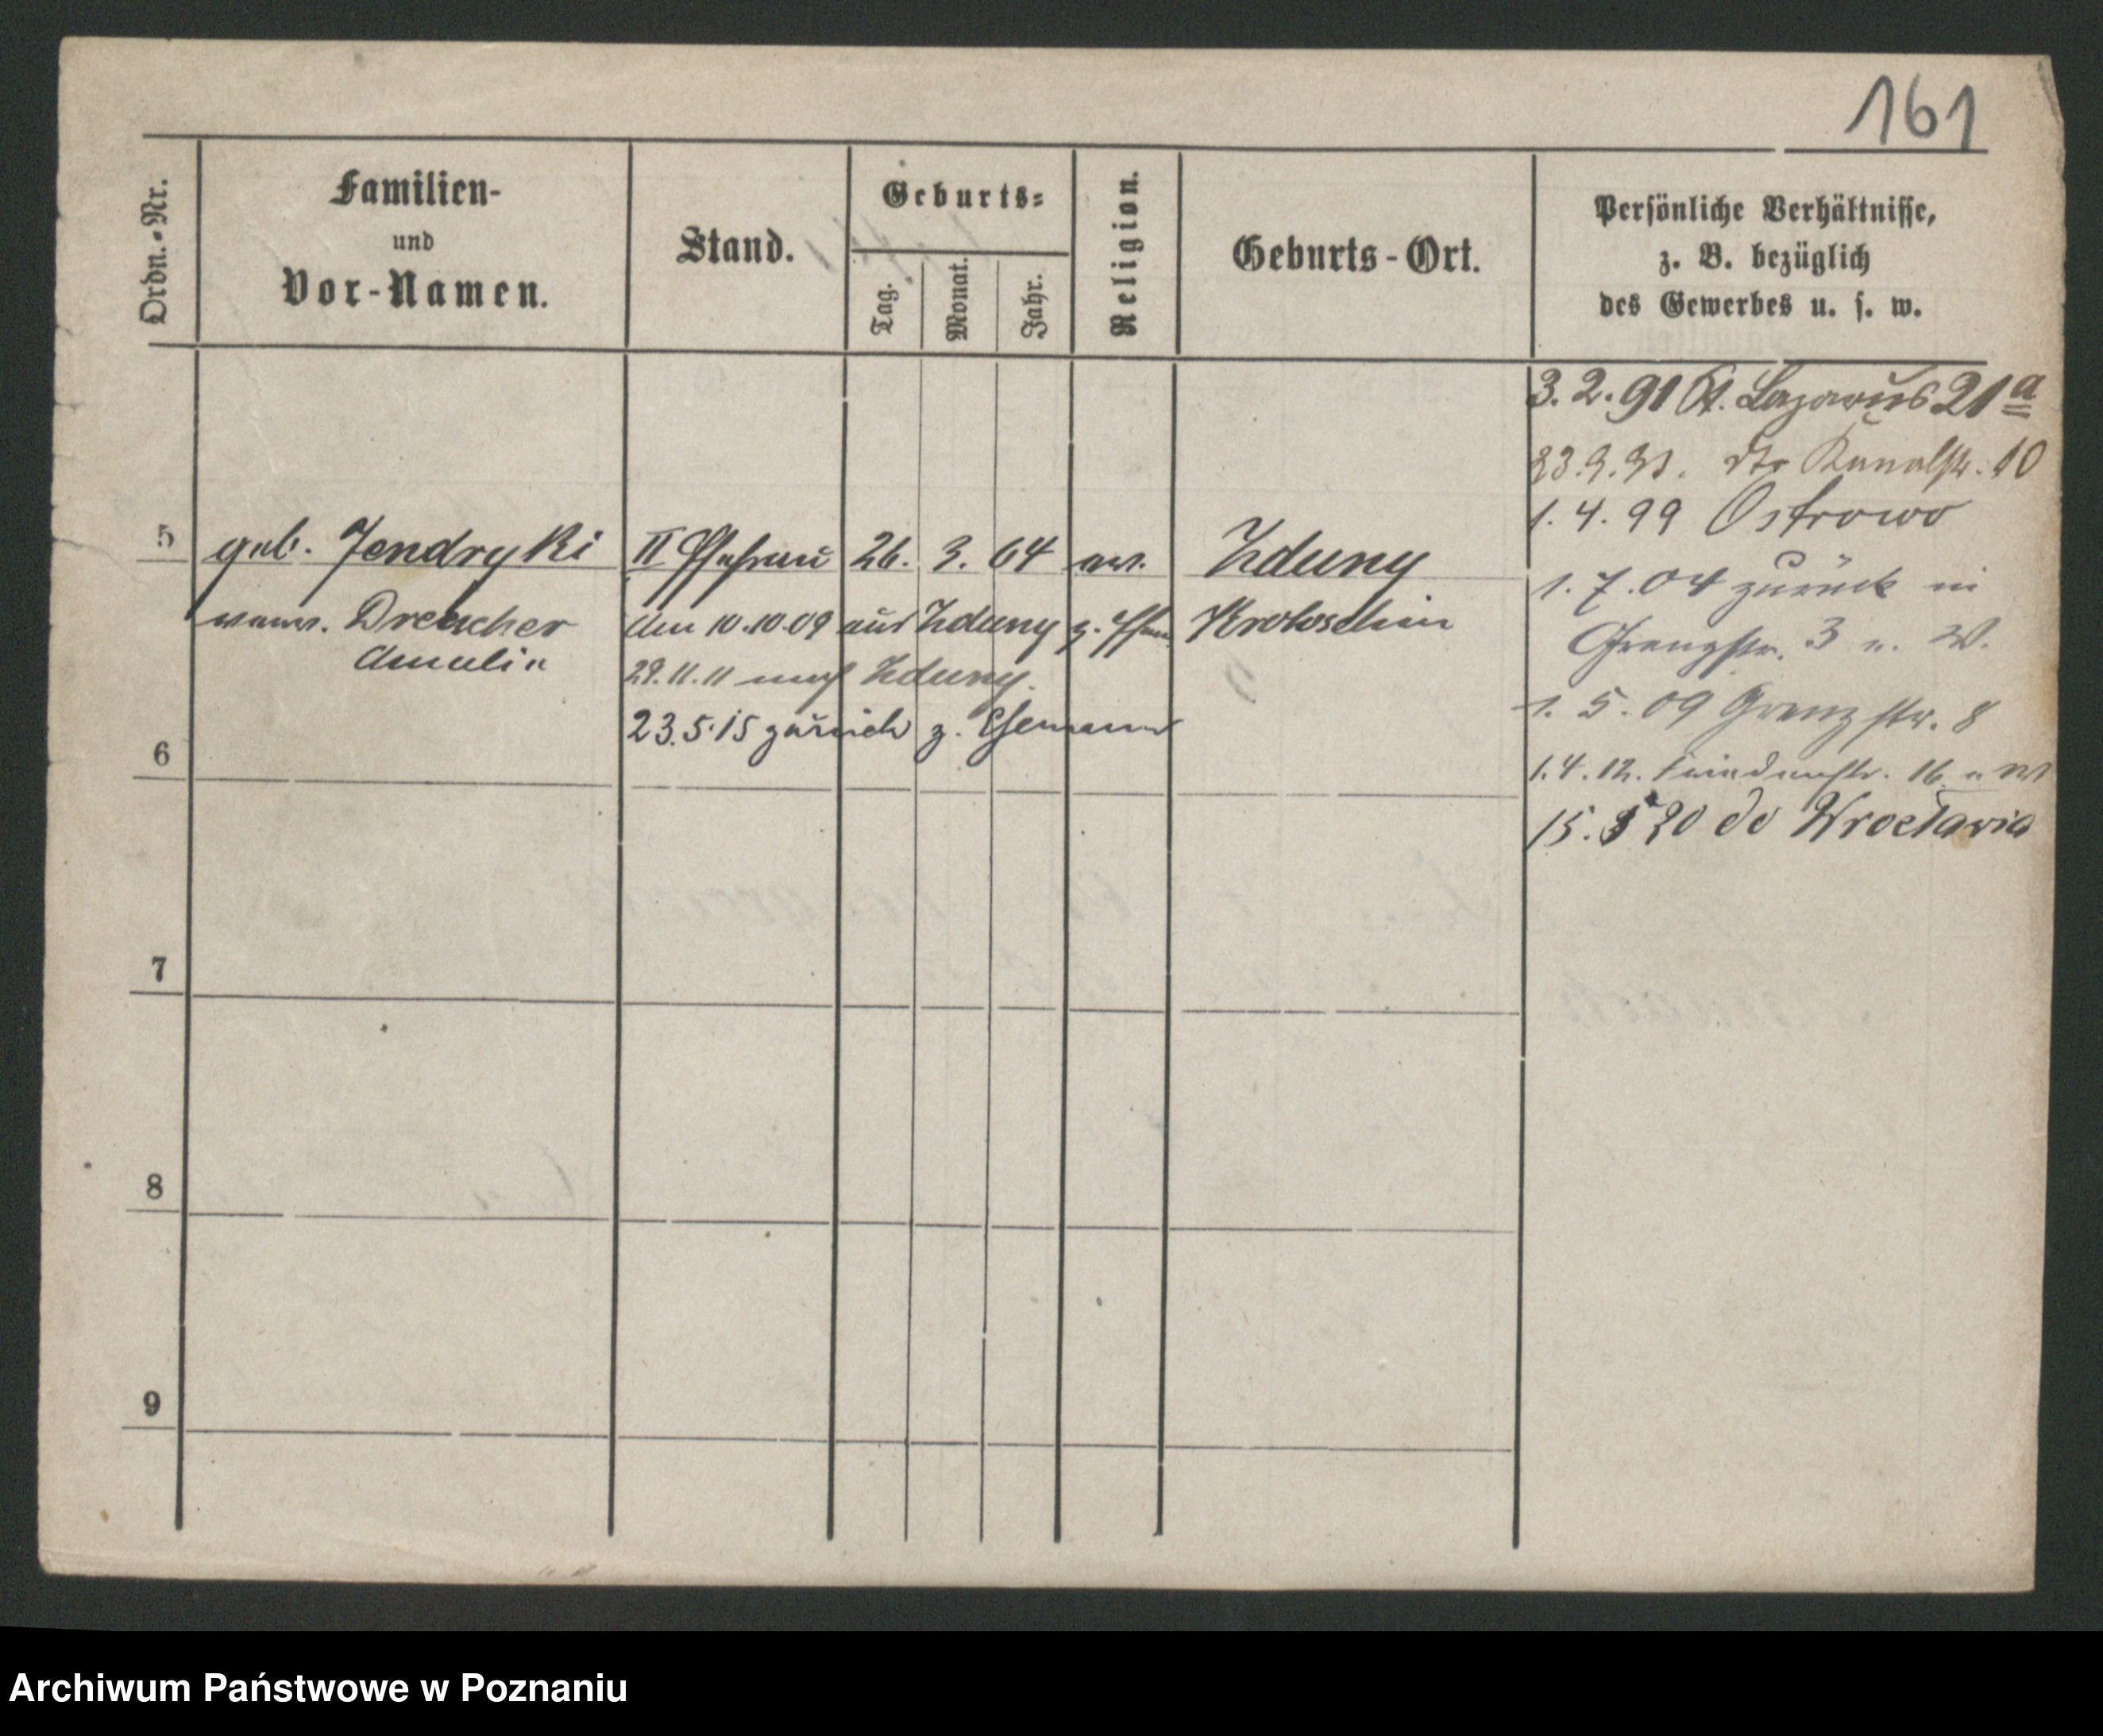 161
Ordn.-Nr.
Familien-
und
Vor-Namen.
Stand.
Geburts-
Tag.
Monat.
Jahr.
Religion.
Geburts-Ort.
Persönliche Verhältnisse,
z. B. bezüglich
des Gewerbes u. s. w.
3. 2. 91 St. Lazarus 21a
23.9.91. dto Kanalstr. 10
1. 4. 99 Ostrowo
5 geb. Jendryki II Ehefrau 26. 3. 64 ev. Zduny
1. 7. 04 zurück in
verw. Drescher Am 10.10.09 aus Zduny z. Krotoschin
Grenzstr. 3 n. W.
Amalie
29.11.11 nach Zduny.
1. 5. 09 Grenzstr. 8
23.5.15 zurück z. Ehemann
6
1.4.12. Friedenstr. 16
15. 5 20 do Wrocławia
7
8
9
Archiwum Państwowe w Poznaniu